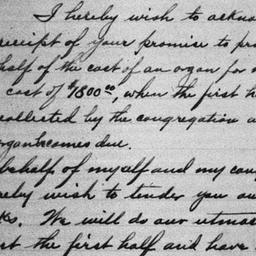 I hereby wish to ackno
receipt of your promise to pr
half of the cost of an organ for
cost of $1800.00, when the first h
collected by the congregation a
organ becomes due.
behalf of myself and my con
reby wish to tender you ou
ks. We will do our utmos
st the first half and have